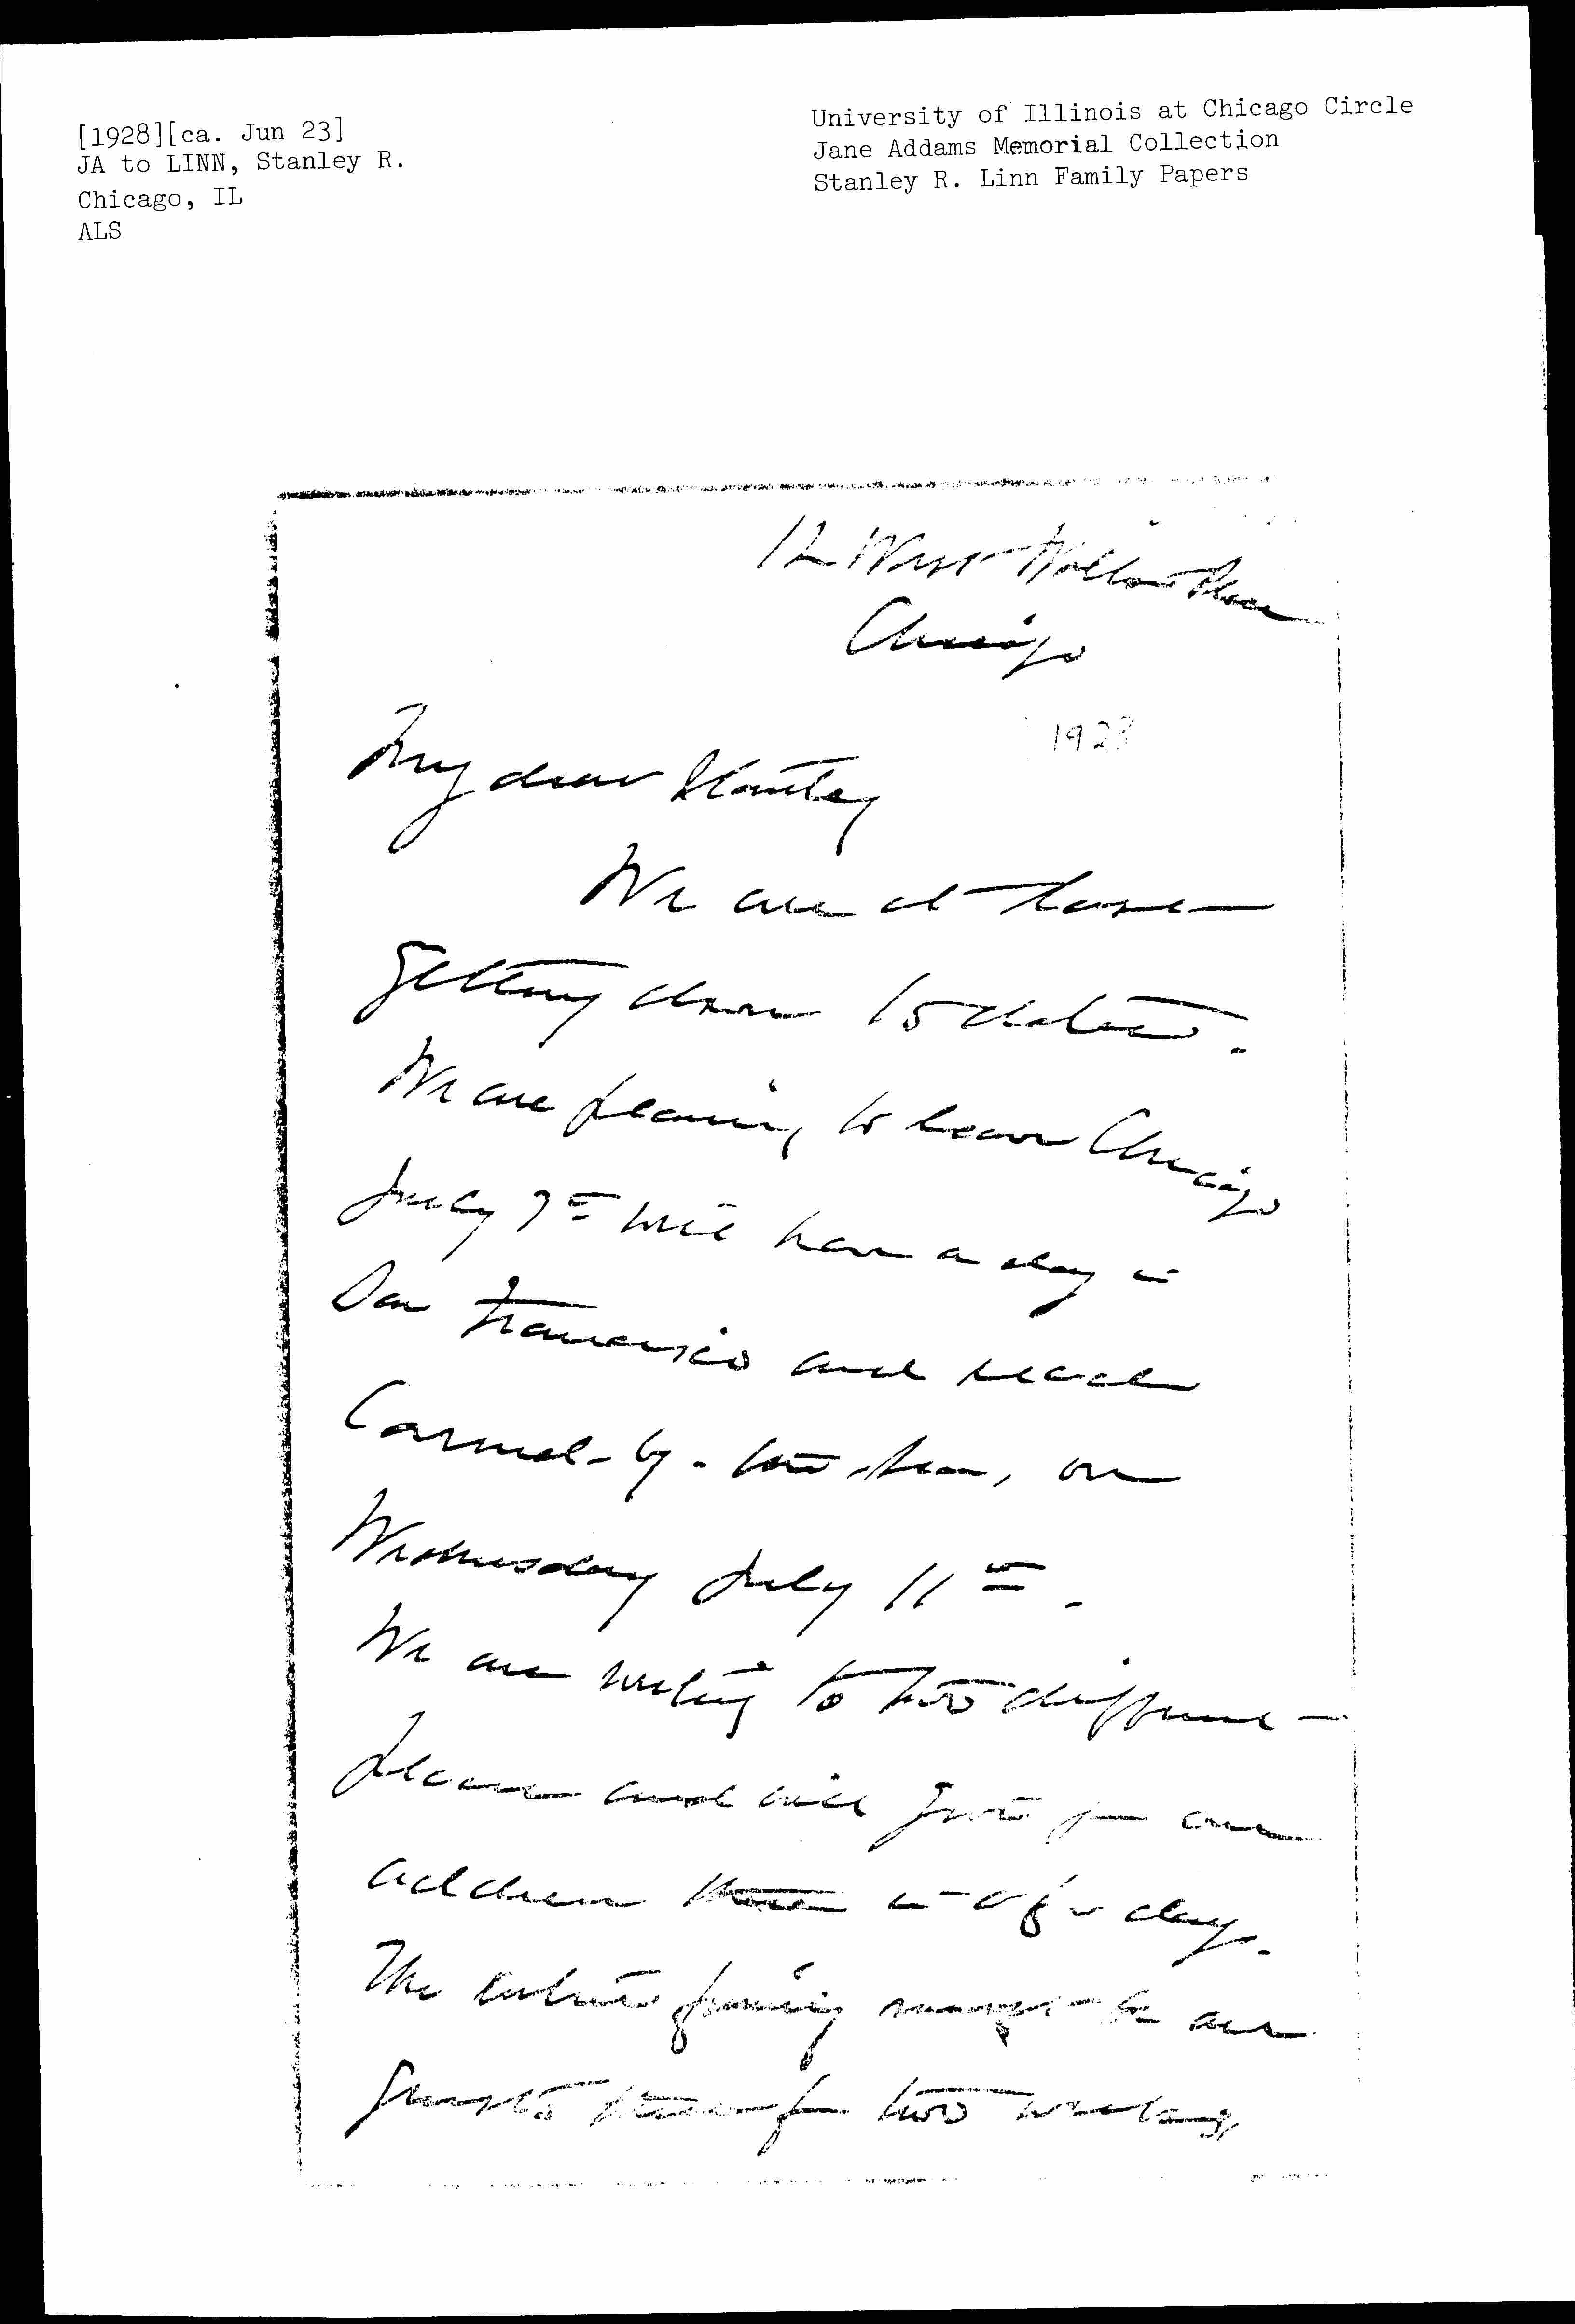 [1928][ca. Jun 23]
JA to LINN, Stanley R.
Chicago, IL
ALS
University of Illinois at Chicago Circle
Jane Addams Memorial Collection
Stanley R. Linn Family Papers
12 West Walton Place
Chicago
1928
My dear Stanley
We are at last
getting down to dates.
We are planning to leave Chicago
July 7th will have a day in
San Francisco and reach
Carmel-by-the-sea, on
Wednesday July 11th.
We are writing to two different
places and will give you our
address there in a few days.
The entire family must be our
guests there for two weeks,